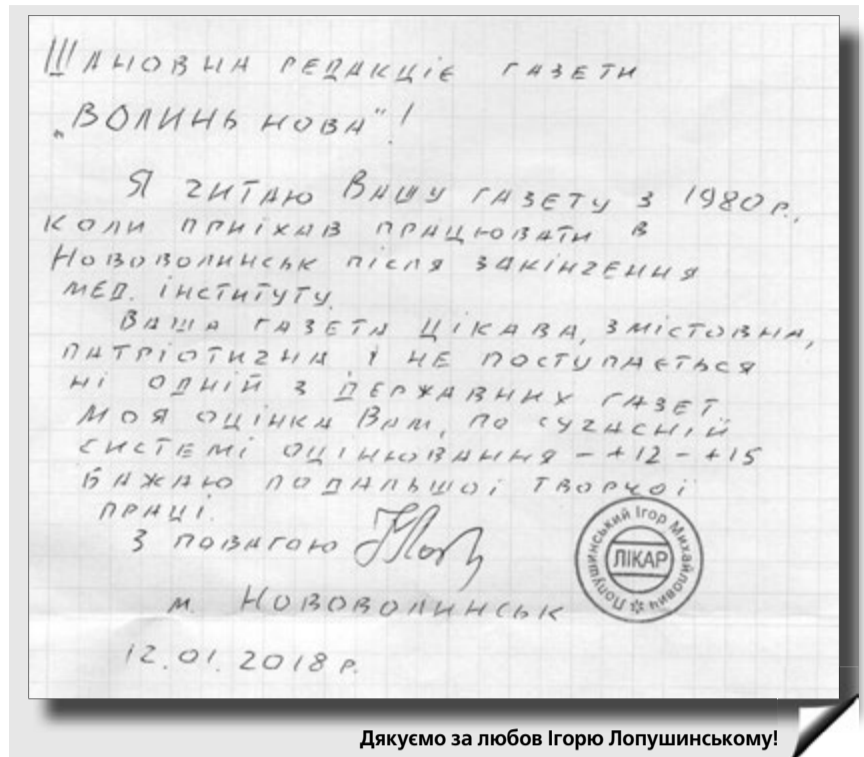 Шановна редакціє газети
„Волинь нова"!
Я читаю Вашу газету з 1980 р.,
коли приїхав працювати в
Нововолинськ після закінчення
мед. інституту.
Ваша газета цікава, змістовна,
патріотична і не поступається
ні одній з державних газет.
Моя оцінка Вам, по сучасній
системі оцінювання – +12 – +15
Бажаю подальшої творчої
праці.
З повагою
Лопушинський Ігор Михайлович
ЛІКАР
м. Нововолинськ
12.01.2018 р.
Дякуємо за любов Ігорю Лопушинському!